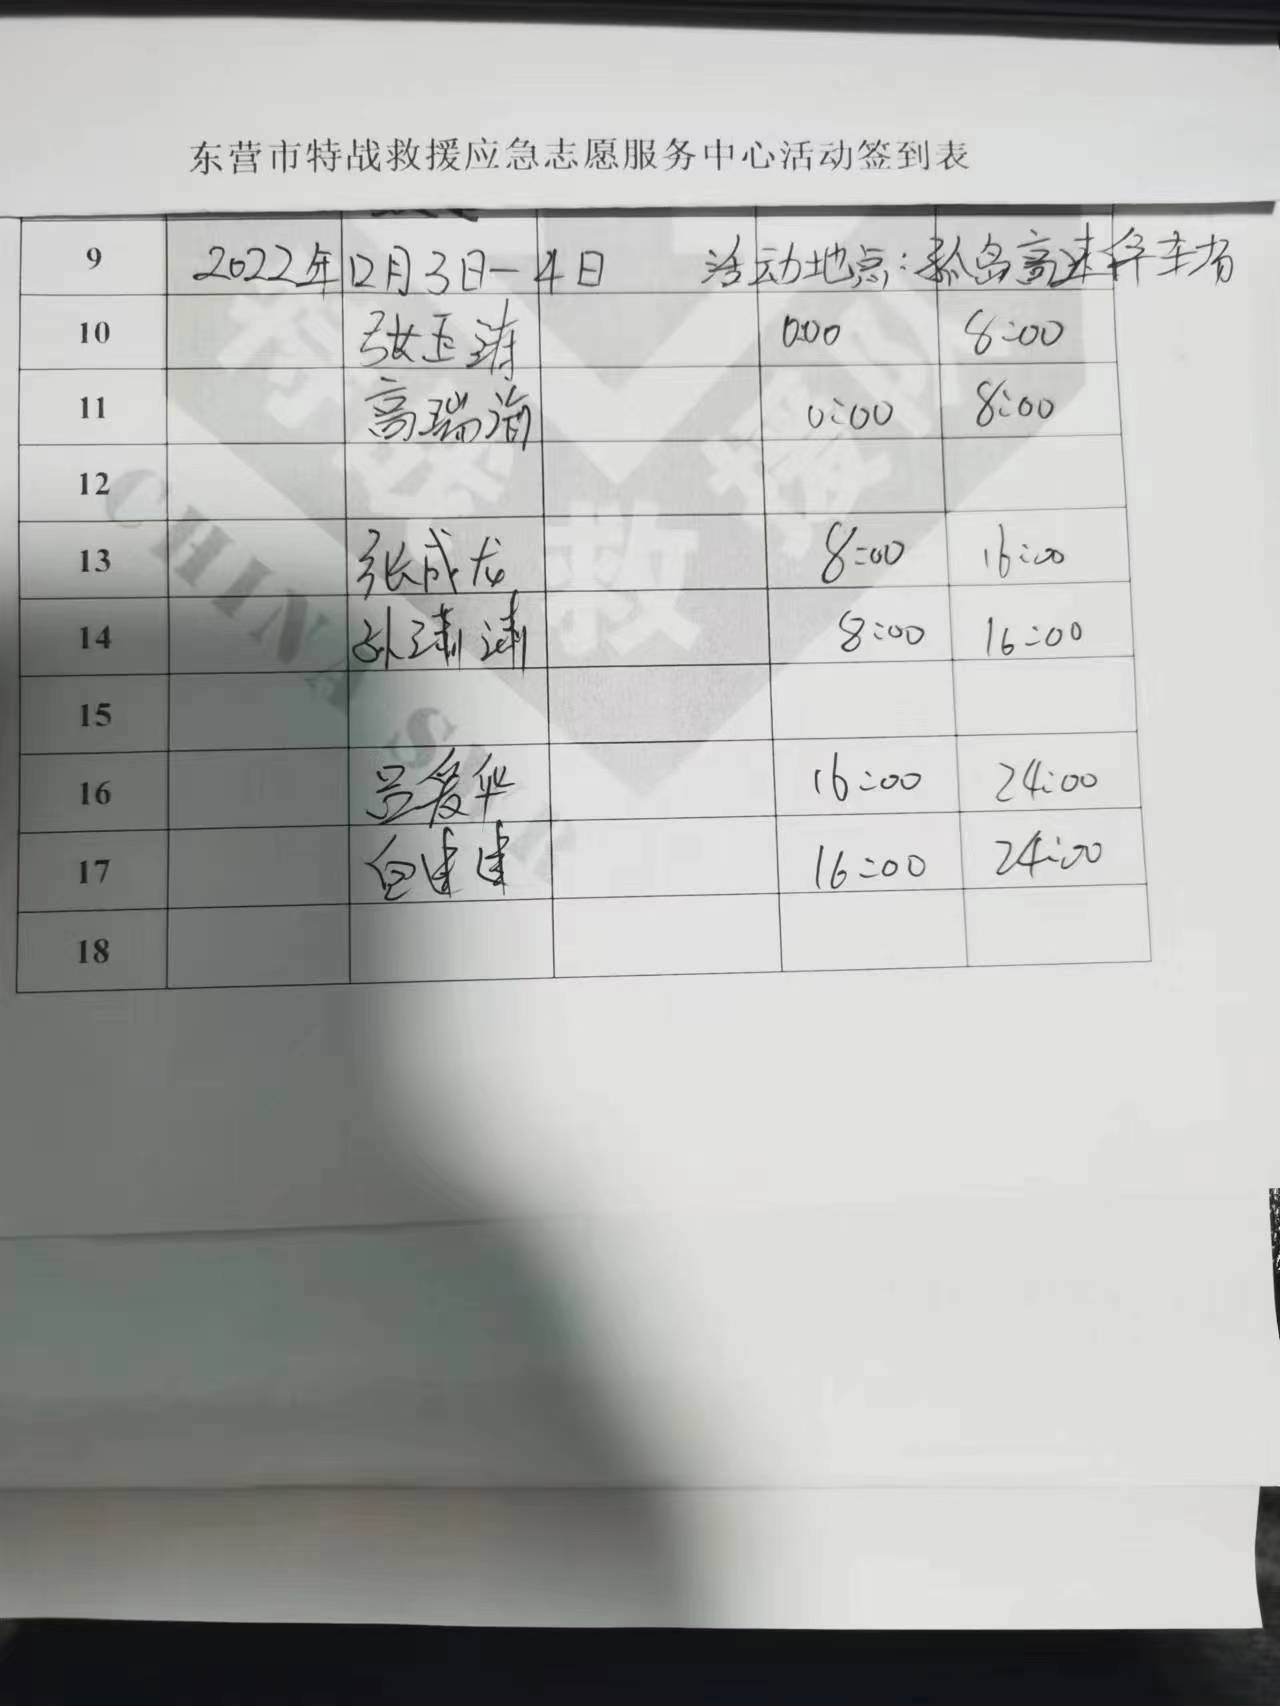 东营市特战救援应急志愿服务中心活动签到表
9 2022年12月3日-4日 活动地点:孤岛高速停车场
10 张玉涛 0:00 8:00
11 高瑞海 0:00 8:00
12
13 张成龙 8:00 16:00
14 8:00 16:00
15
16 吕爱华 16:00 24:00
17 白建建 16:00 24:00
18
特战救援队
CHINA